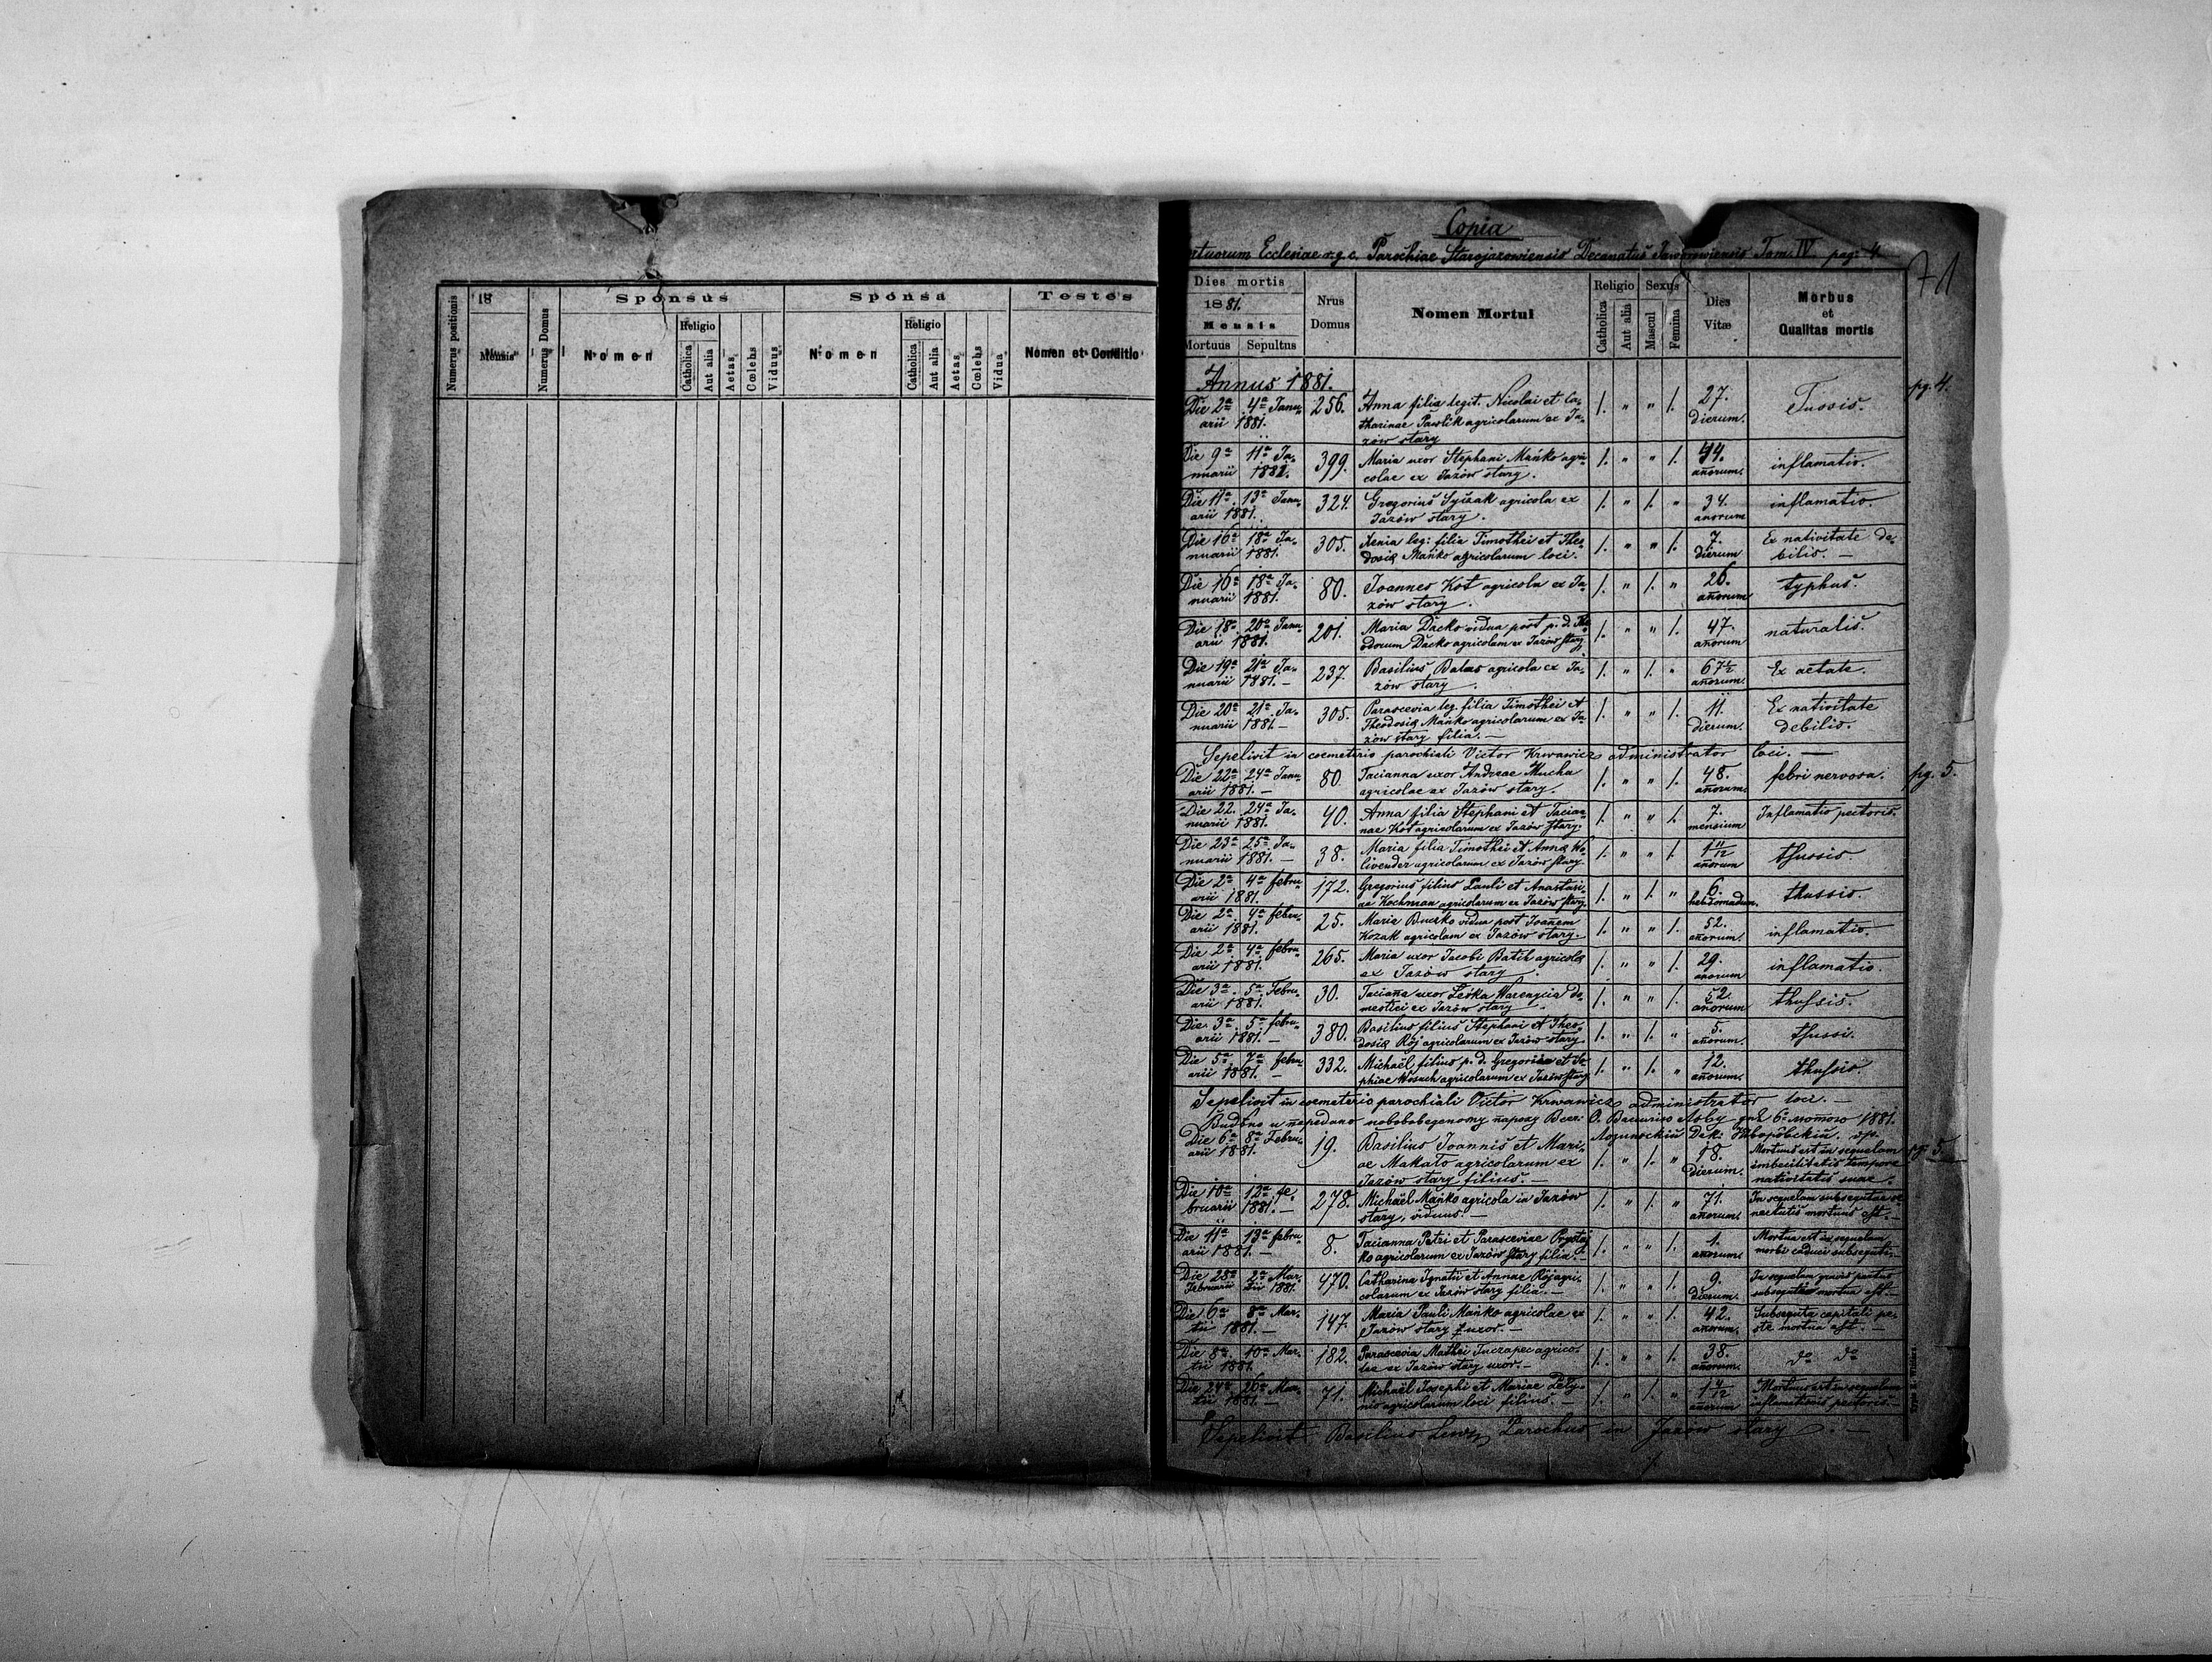 Numerus positionis
18
Mensis
Numerus Domus
Sponsus
Nomen
Religio
Catholica
Aut alia
Aetas
Cœlebs
Viduus
Sponsa
Nomen
Religio
Catholica
Aut alia
Aetas
Cœlebs
Vidua
Testes
Nomen et Conditio
Copia
rtuorum Ecclesiae r. g. c. Parochiae Starojazowiensis Decanatus Jaworowiensis Tom. IV. pag: 4.
71
Dies mortis
1881.
Mensis
Mortuus Sepultus
Nrus Domus
Nomen Mortui
Religio
Catholica
Aut alia
Sexus
Mascul
Femina
Dies Vitæ
Morbus et Qualitas mortis
Annus 1881.
pg. 4.
Die 2ª 4ª Januarii 1881. 256. Anna filia legit. Nicolai et Ca-
tharinae Pawlik agricolarum ex Ja-
zów stary 1. " " 1. 27. dierum. Tussis.
Die 9ª 11ª Ja-
nuarii 1881. 399. Maria uxor Stephani Mańko agri-
colae ex Jazów stary. 1. " " 1. 44. añorum. inflamatio.
Die 11ª 13ª Janu-
arii 1881. 324. Gregorius agricola ex
Jazów stary. 1. " 1. " 34. anorum inflamatio.
Die 16ª 18ª Ja-
nuarii 1881. 305. Xenia leg: filia Timothei et Theo-
dosiæ Mańko agricolarum loci. 1. " " 1. 7. dierum Ex nativitate de-
bilis. —
Die 16ª 18ª Ja-
nuarii 1881. 80. Joannes Kot agricola ex Ja-
zów stary. 1. " 1. " 26. añorum typhus.
Die 18ª 20ª Janu-
arii 1881. 201. Maria Dacko vidua post p. d. The-
odorum Dacko agricolam ex Jazów stary 1. " " 1. 47. añorum naturalis.
Die 19ª 21ª Ja-
nuarii 1881. — 237. Basilius Balas agricola ex Ja-
zów stary. 1. " 1. " 67½ añorum. Ex aetate.
Die 20ª 21ª Ja-
nuarii 1881 — 305. Parascevia leg. filia Timothei et
Theodosiæ Mańko agricolarum ex Ja-
zów stary filia. — 1. " " 1. 11. dierum. Ex nativitate
debilis.
Sepelivit in coemeterio parochiali Victor Krwawicz administrator loci. —
Die 22ª 24ª Janu-
arii 1881. — 80 Tacianna uxor Andreae Mucha
agricolae ex Jazów stary. 1. " " 1. 48. añorum. febri nervosa. pg. 5.
Die 22. 24ª Ja-
nuarii 1881. 40. Anna filia Stephani et Tacian-
nae Kot agricolarum ex Jazów stary. 1. " " 1. 7. mensium Inflamatio pectoris.
Die 23ª 25ª Ja-
nuarii 1881. — 38. Maria filia Timothei et Annæ Wo-
livender agricolarum ex Jazów stary. 1. " " 1. 1 11/12 añorum thussis.
Die 2ª 4ª febru-
arii 1881. 172. Gregorius filius Pauli et Anastasi-
ae Kochman agricolarum ex Jazów stary. 1. " 1. " 6. hebdomadum. thussis.
Die 2ª 4ª febru-
arii 1881. 25. Maria Buczko vidua post Joañem
Kozak agricolam ex Jazów stary. 1. " " 1. 52. añorum. inflamatio.
Die 2ª 4ª febru-
arii 1881. 265. Maria uxor Jacobi Batih agricolæ
ex Jazów stary. 1. " " 1. 29. anorum inflamatio.
Die 3ª 5ª Febru-
arii 1881. 30. Taciaña uxor do-
mestici ex Jazów stary 1. " " 1. 52. añorum thussis.
Die 3ª 5ª febru-
arii 1881. — 380. Basilius filius Stephani et Theo-
dosiæ Rój agricolarum ex Jazów stary 1. " 1. " 5. añorum. thussi.
Die 5ª 7ª febru-
arii 1881. — 332. Michaël filius p. d. Gregorii et So-
phiae agricolarum ex Jazów stary 1. " 1. " 12. añorum. thussis.
Sepelivit in coemeterio parochiali Victor Krwawicz administrator loci. —
1881.
Die 6ª 8ª Febru-
arii 1881. 19. Basilius Joannis et Mari-
ae Makato agricolarum ex
Jazów stary filius. — 1. " 1. " 18. dierum. Mortuus est in sequelam
imbecilitatis tempore
nativitatis suae. pg. 5.
Die 10ª 12ª fe-
bruarii 1881. — 278. Michaël Mańko agricola in Jazów
stary, viduus. — 1. " 1. " 71. añorum. In sequelam subsequtae se-
nectutis mortuus est. —
Die 11ª 13ª febru-
arii 1881. — 8. Tacianna Petri et Parasceviae
agricolarum ex Jazów stary filia. — 1. " " 1. 1. anorum. Mortua est in sequelam
morbi caduci subsequti. —
Die 28ª 2ª Mar-
Februarii tii 1881. 470. Catharina Ignatii et Annae Rój agri-
colarum ex Jazów stary filia. — 1. " " 1. 9. dierum. In sequelam gravis partus
subsequtae mortua est. —
Die 6ª 8ª Mar-
tii 1881. — 147. Maria Pauli Mańko agricolae ex
Jazów stary uxor. — 1. " " 1. 42. anorum. Subsequta capitali pe-
ste mortua est. —
Die 8ª 10ª Mar-
tii 1881. 182. Parascevia Mathei Tuczapec agrico-
lae ex Jazów stary uxor. — 1. " " 1. 38. añorum. dº dº
Die 24ª 26ª Mar-
tii 1881. — 71. Michaël Josephi et Mariae
agricolarum loci filius. — 1. " 1. " 1 4/12 añorum Mortuus est in sequelam
inflamationis pectoris. —
Sepelivit Basilius Parochus in Jazów stary. —